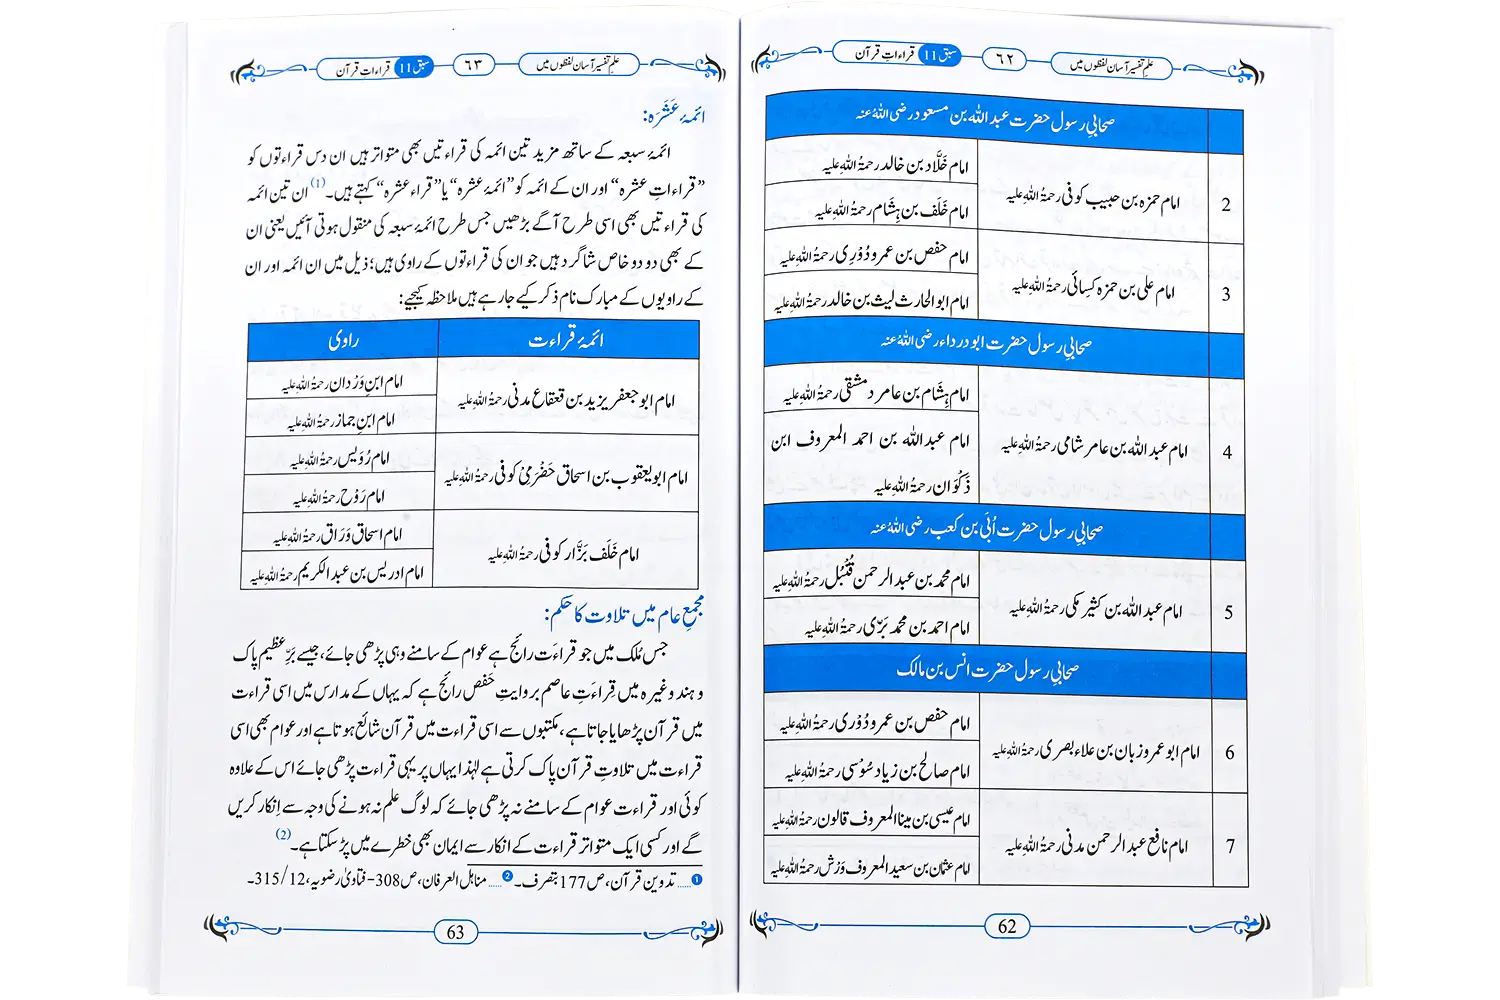 علمِ تفسیر آسان لفظوں میں
٦٢
سبق 11 قراءاتِ قرآن
صحابیِ رسول حضرت عبد اللہ بن مسعود رضی اللہُ عنہ
2
امام حمزہ بن حبیب کوفی رحمۃُ اللہِ علیہ
امام خَلَّاد بن خالد رحمۃُ اللہِ علیہ
امام خَلَف بن ہِشَام رحمۃُ اللہِ علیہ
3
امام علی بن حمزہ کِسائی رحمۃُ اللہِ علیہ
امام حفص بن عمرو دُوْرِی رحمۃُ اللہِ علیہ
امام ابو الحارث لیث بن خالد رحمۃُ اللہِ علیہ
صحابیِ رسول حضرت ابو درداء رضی اللہُ عنہ
4
امام عبد اللہ بن عامر شامی رحمۃُ اللہِ علیہ
امام ہِشَام بن عامر دمشقی رحمۃُ اللہِ علیہ
امام عبد اللہ بن احمد المعروف ابن
ذَکْوَان رحمۃُ اللہِ علیہ
صحابیِ رسول حضرت اُبَی بن کعب رضی اللہُ عنہ
5
امام عبد اللہ بن کثیر مکی رحمۃُ اللہِ علیہ
امام محمد بن عبد الرحمن قُنْبُل رحمۃُ اللہِ علیہ
امام احمد بن محمد بَزِّی رحمۃُ اللہِ علیہ
صحابیِ رسول حضرت انس بن مالک
6
امام ابو عمرو زبان بن علاء بصری رحمۃُ اللہِ علیہ
امام حفص بن عمرو دُوْرِی رحمۃُ اللہِ علیہ
امام صالح بن زیاد سُوْسی رحمۃُ اللہِ علیہ
7
امام نافع عبد الرحمن مدنی رحمۃُ اللہِ علیہ
امام عیسی بن مینا المعروف قالون رحمۃُ اللہِ علیہ
امام عثمان بن سعید المعروف وَرْش رحمۃُ اللہِ علیہ
62
علمِ تفسیر آسان لفظوں میں
٦٣
سبق 11 قراءاتِ قرآن
ائمۂ عَشَرَہ:
ائمۂ سبعہ کے ساتھ مزید تین ائمہ کی قراءتیں بھی متواتر ہیں ان دس قراءتوں کو
”قراءاتِ عشرہ“ اور ان کے ائمہ کو ”ائمۂ عشرہ“ یا ”قراء عشرہ“ کہتے ہیں۔(1) ان تین ائمہ
کی قراءتیں بھی اسی طرح آگے بڑھیں جس طرح ائمۂ سبعہ کی منقول ہوتی آئیں یعنی ان
کے بھی دو دو خاص شاگرد ہیں جو ان کی قراءتوں کے راوی ہیں؛ ذیل میں ان ائمہ اور ان
کے راویوں کے مبارک نام ذکر کیے جارہے ہیں ملاحظہ کیجیے:
ائمۂ قراءت
راوی
امام ابو جعفر یزید بن قعقاع مدنی رحمۃُ اللہِ علیہ
امام ابنِ وَرْدان رحمۃُ اللہِ علیہ
امام ابنِ جماز رحمۃُ اللہِ علیہ
امام ابو یعقوب بن اسحاق حَضْرَمِیْ کوفی رحمۃُ اللہِ علیہ
امام رُوَیس رحمۃُ اللہِ علیہ
امام رَوْح رحمۃُ اللہِ علیہ
امام خَلَف بَزَّار کوفی رحمۃُ اللہِ علیہ
امام اسحاق وَرَاق رحمۃُ اللہِ علیہ
امام ادریس بن عبد الکریم رحمۃُ اللہِ علیہ
مجمعِ عام میں تلاوت کا حکم:
جس مُلک میں جو قراءَت رائج ہے عوام کے سامنے وہی پڑھی جائے، جیسے بَرِّ عظیم پاک
و ہند وغیرہ میں قِراءَتِ عاصم بروایتِ حَفص رائج ہے کہ یہاں کے مدارس میں اسی قراءت
میں قرآن پڑھایا جاتا ہے، مکتبوں سے اسی قراءت میں قرآن شائع ہوتا ہے اور عوام بھی اسی
قراءت میں تلاوتِ قرآن پاک کرتی ہے لہٰذا یہاں پر یہی قراءت پڑھی جائے اس کے علاوہ
کوئی اور قراءت عوام کے سامنے نہ پڑھی جائے کہ لوگ علم نہ ہونے کی وجہ سے اِنکار کریں
گے اور کسی ایک متواتر قراءت کے انکار سے ایمان بھی خطرے میں پڑ سکتا ہے۔(2)
1..... تدوین قرآن، ص177 بتصرف۔ 2..... مناہل العرفان، ص308- فتاویٰ رضویہ، 12/315۔
63